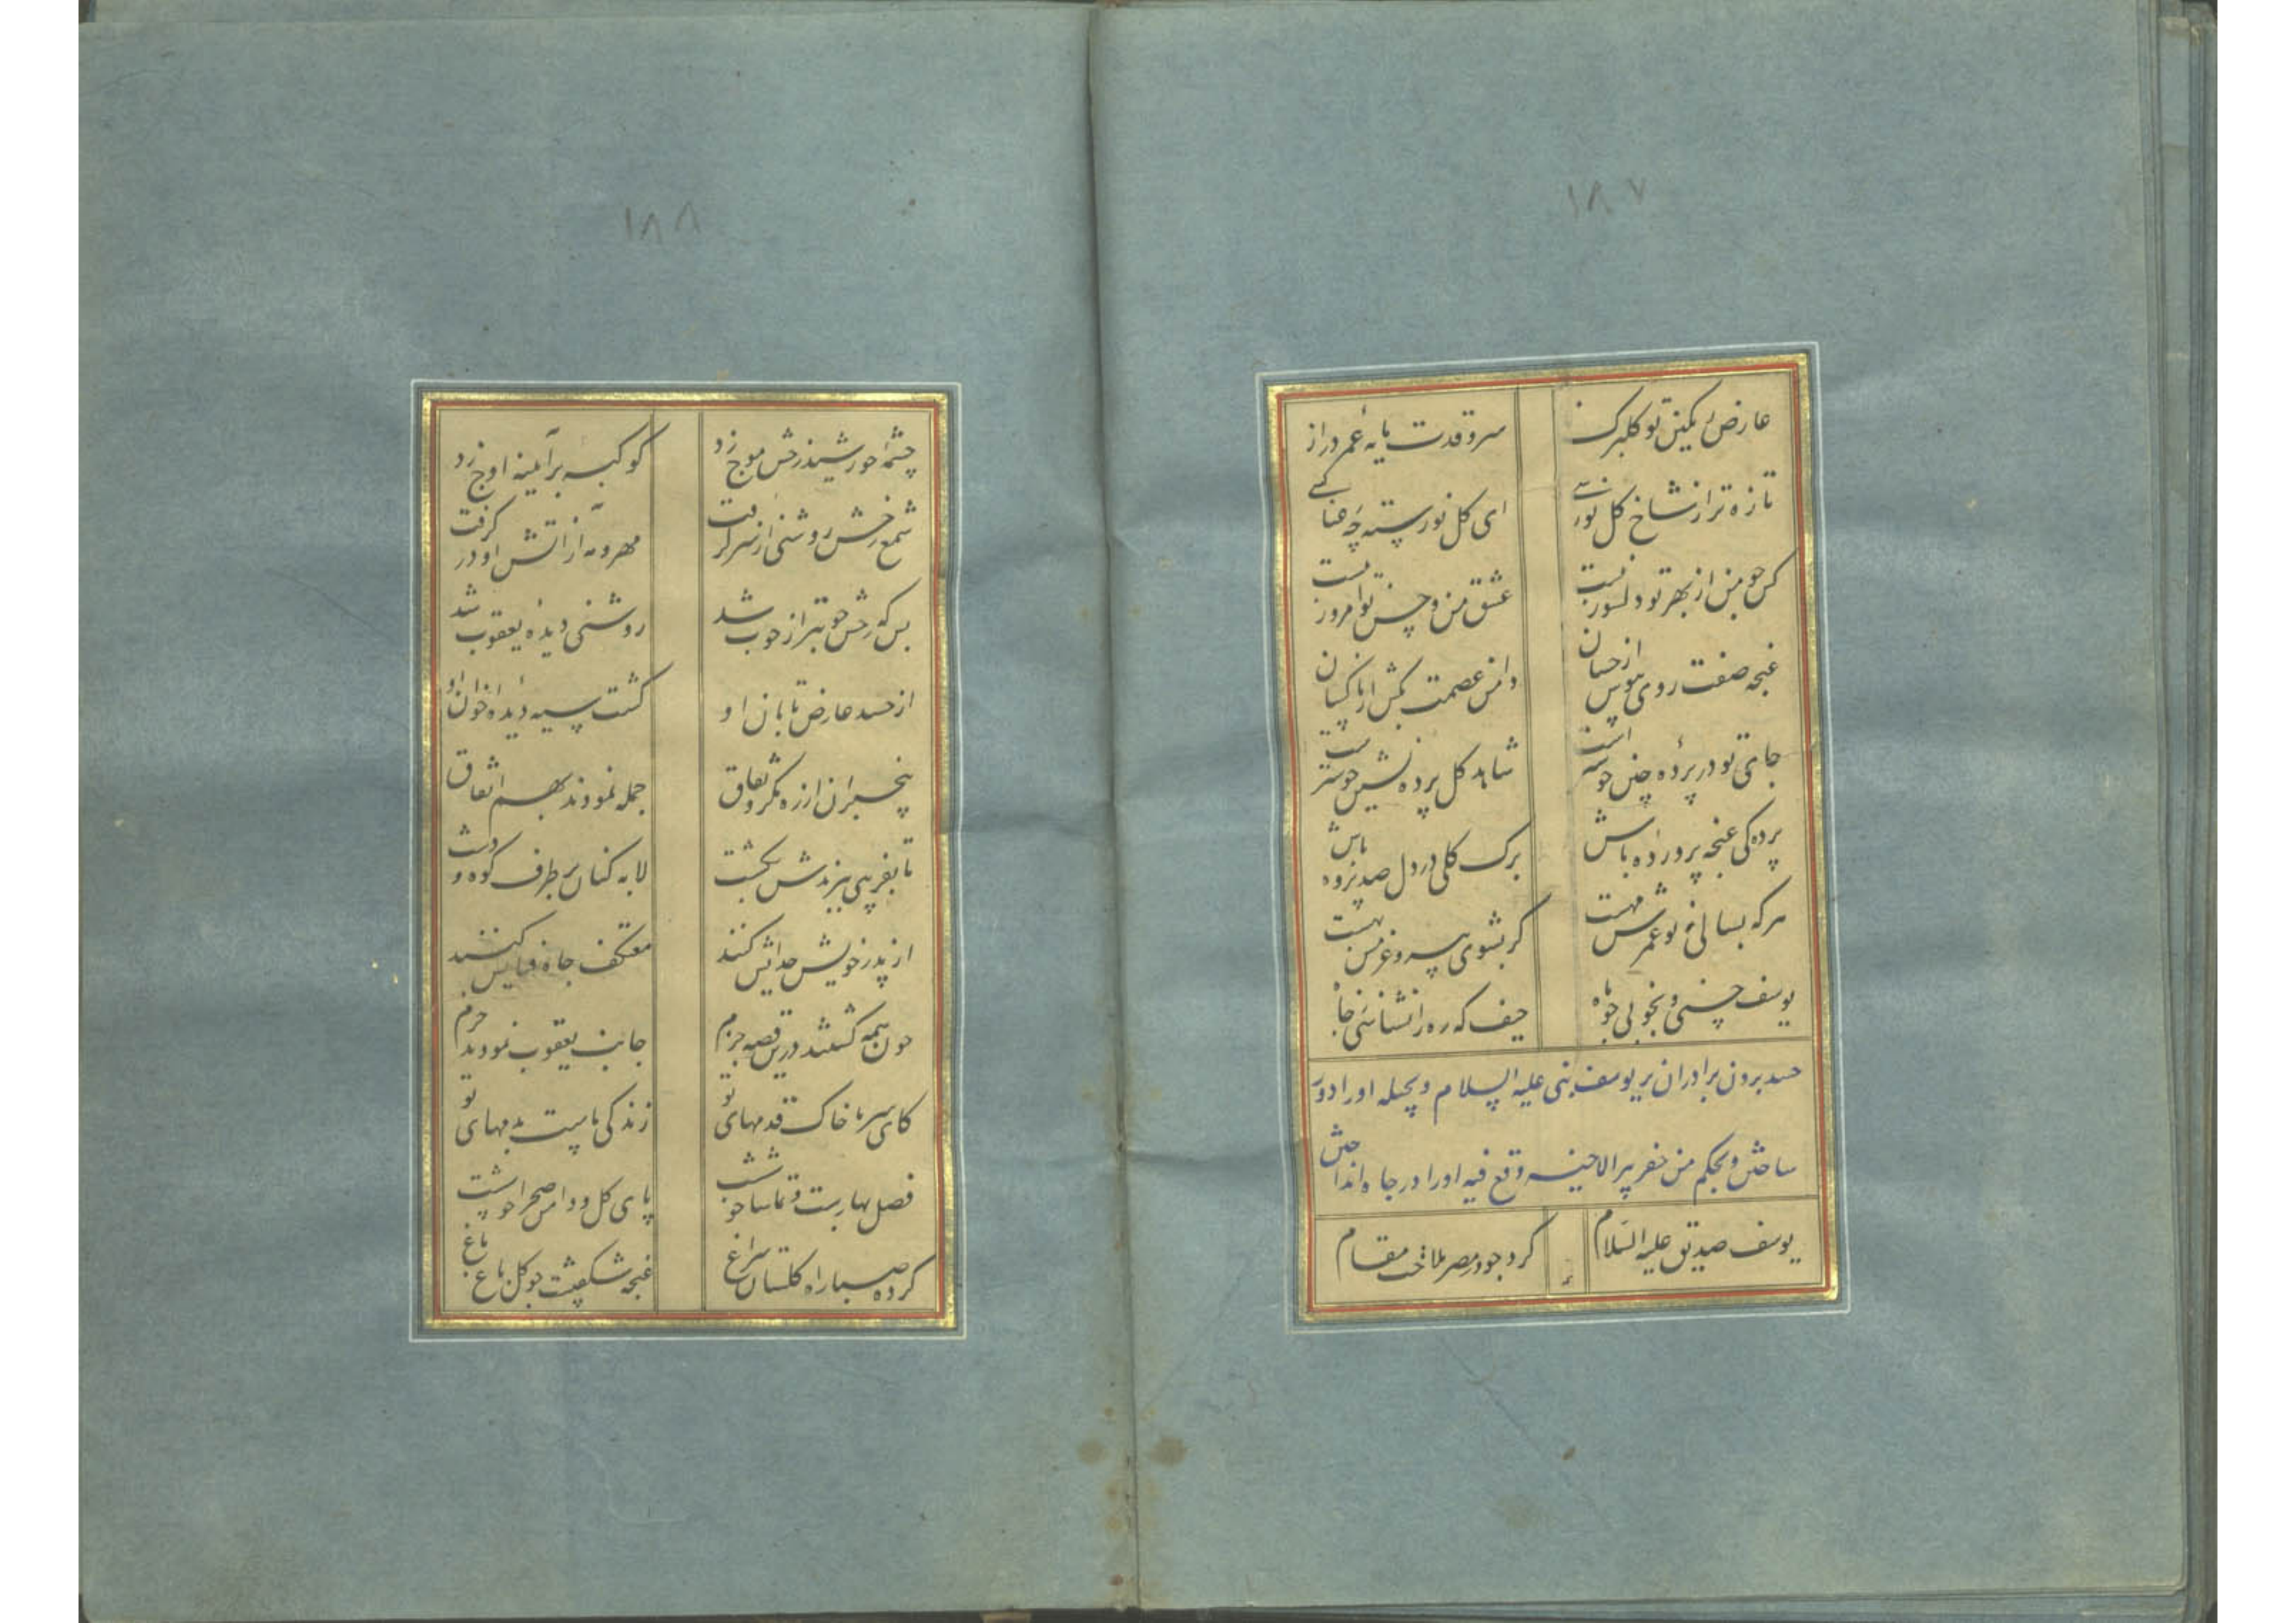 ۱۸۷
عارض رنگین تو گلبرگ ناز
سرو قدت مایه عمر دراز
تازه تر از شاخ گل نورسی
ای گل نورسته چه عنا کسی
کس چو من از بهر تو دلسوز نیست
عشق من و حسن تو امروز نیست
غنچه صفت روی بپوش از خسان
دامن عصمت بکش از ناکسان
جای تو در پرده چنین خوشتر است
شاهد گل پرده نشین خوشتر است
پرده گی غنچه پرورده باش
برک گلی در دل صد پرده باش
هر که بسالی ز تو عمرش مهست
گر بشنوی پیروغرمش بهست
یوسف حسنی و بخوبی چو ماه
حیف که ره را نشناسی ز چاه
حسد بردن برادران بر یوسف نبی علیه السلام و بحیله او را دور
ساختن و بحکم من حفر بیر الاخیه وقع فیه او را در چاه انداختن
یوسف صدیق علیه السلام
کرد چو در مصر ملاحت مقام
۱۸۸
چشمه خورشید رخش موج زد
کوکبه بر آینه اوج زد
شمع رخش روشنی از سر گرفت
مهر و مه از آتش او در گرفت
بس که رخش خوبتر از خوب شد
روشنی دیده یعقوب شد
از حسد عارض تابان او
گشت سیه دیده اخوان او
بیخبران از ره مکر و نفاق
جمله نمودند بهم اتفاق
تا بفریبی ببرندش بگشت
لابه کنان بر طرف کوه و دشت
از پدر خویش جدائیش کنند
معتکف چاه فنایش کنند
چون همه گشتند درین قصه جزم
جانب یعقوب نمودند عزم
کای سر ما خاک قدمهای تو
زندگی ماست بدمهای تو
فصل بهارست و تماشا خوشست
پای گل و دامن صحرا خوشست
کرده صبا راه گلستان سراغ
غنچه شکفتست چو گل باغ باغ